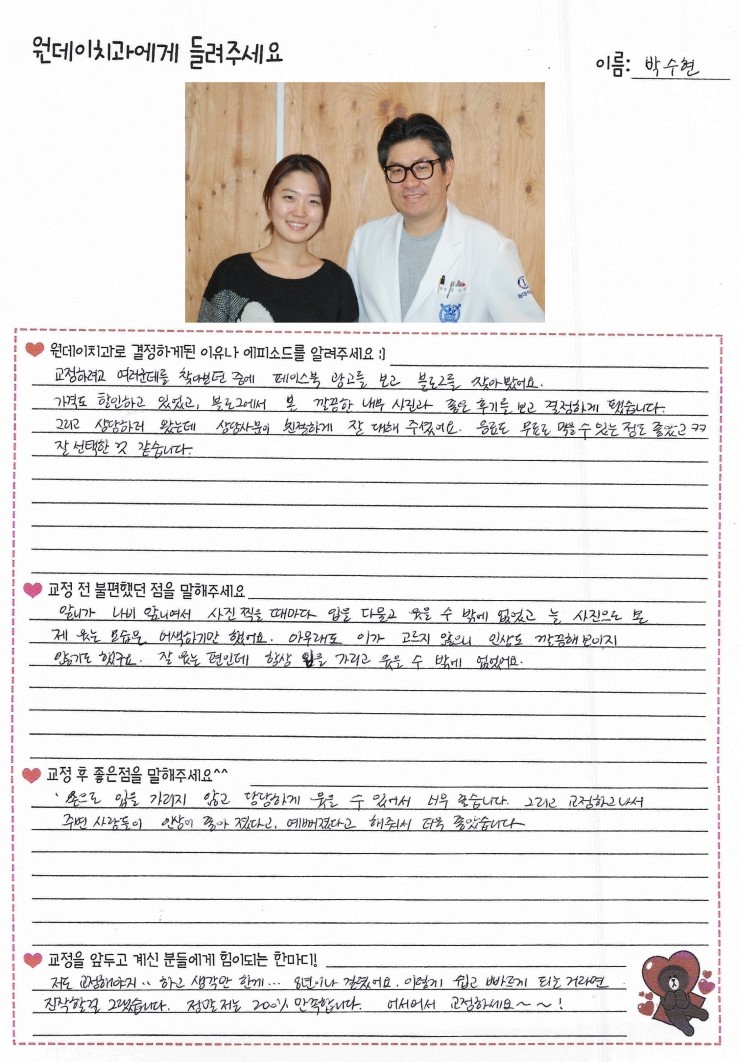 원데이치과에게 들려주세요
이름: 박수현
원데이치과로 결정하게된 이유나 에피소드를 알려주세요 :)
교정하려고 여러군데를 찾아보던 중에 페이스북 광고를 보고 블로그를 찾아봤어요.
가격도 할인하고 있었고, 블로그에서 본 깔끔한 내부 사진과 좋은 후기를 보고 결정하게 됐습니다.
그리고 상담하러 왔는데 상담사분이 친절하게 잘 대해 주셨어요. 음료도 무료로 먹을 수 있는 점도 좋았고 ㅋㅋ
잘 선택한 것 같습니다.
교정 전 불편했던 점을 말해주세요
앞니가 나비 앞니여서 사진 찍을 때마다 입을 다물고 웃을 수 밖에 없었고 늘 사진으로 본
제 웃는 모습은 어색하기만 했어요. 아무래도 이가 고르지 않으니 인상도 깔끔해 보이지
않기도 했구요. 잘 웃는 편인데 항상 입을 가리고 웃을 수 밖에 없었어요.
교정 후 좋은점을 말해주세요^^
손으로 입을 가리지 않고 당당하게 웃을 수 있어서 너무 좋습니다. 그리고 교정하고나서
주변 사람들이 인상이 좋아 졌다고, 예뻐졌다고 해줘서 더욱 좋았습니다
교정을 앞두고 계신 분들에게 힘이되는 한마디!
저도 교정해야지.. 하고 생각만 한게... 8년이나 걸렸어요. 이렇게 쉽고 빠르게 되는 거라면
진작할걸 그랬습니다. 정말 저는 200% 만족합니다. 어서어서 교정하세요~~!